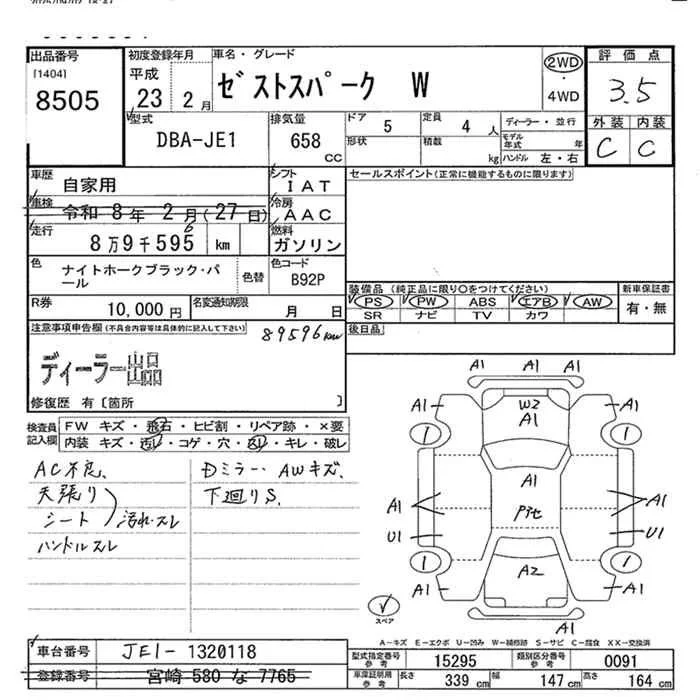 出品番号
[1404]
8505
初度登録年月
平成
23 2 月
車名・グレード
ゼストスパーク W
2WD
・
4WD
評価点
3.5
外装 内装
C C
型式
DBA-JE1
排気量
658
CC
ドア
5
定員
4 人
形状
積載
kg
ディーラー・並行
モデル年式 年
ハンドル 左・右
車歴
自家用
シフト
IAT
車検
令和 8年 2月(27日)
冷房
AAC
走行
8万9千595 km
6
燃料
ガソリン
色
ナイトホークブラック・パール
色替
色コード
B92P
R券
10,000 円
名変通知期限
月 日
セールスポイント(正常に機能するものに限ります)
装備品(純正品に限り○をつけてください)
PS PW ABS エアB AW
SR ナビ TV カワ
新車保証書
有・無
後日品
注意事項申告欄(不具合内容等は具体的に記入して下さい)
89596km
ディーラー出品
修復歴 有〔箇所 〕
検査員記入欄
FW キズ・飛石・ヒビ割・リペア跡・×要
内装 キズ・汚レ・コゲ・穴・スリ・キレ・破レ
AC不良、
天張り
シート
汚れ・スレ
ハンドルスレ
Dミラー・AWキズ、
下廻りS、
A1
A1 A1
A1 W2 A1
A1
A1
A1 A1
U1 U1
A2
A1 A1
A1
スペア
A-キズ E-エクボ U-凹み W-補修跡 S-サビ C-腐食 XX-交換済
車台番号
JE1-1320118
登録番号
宮崎 580 な 7765
型式指定番号
参考
15295
類別区分番号
参考
0091
車庫証明用
参考
長さ 339 cm 幅 147 cm 高さ 164 cm